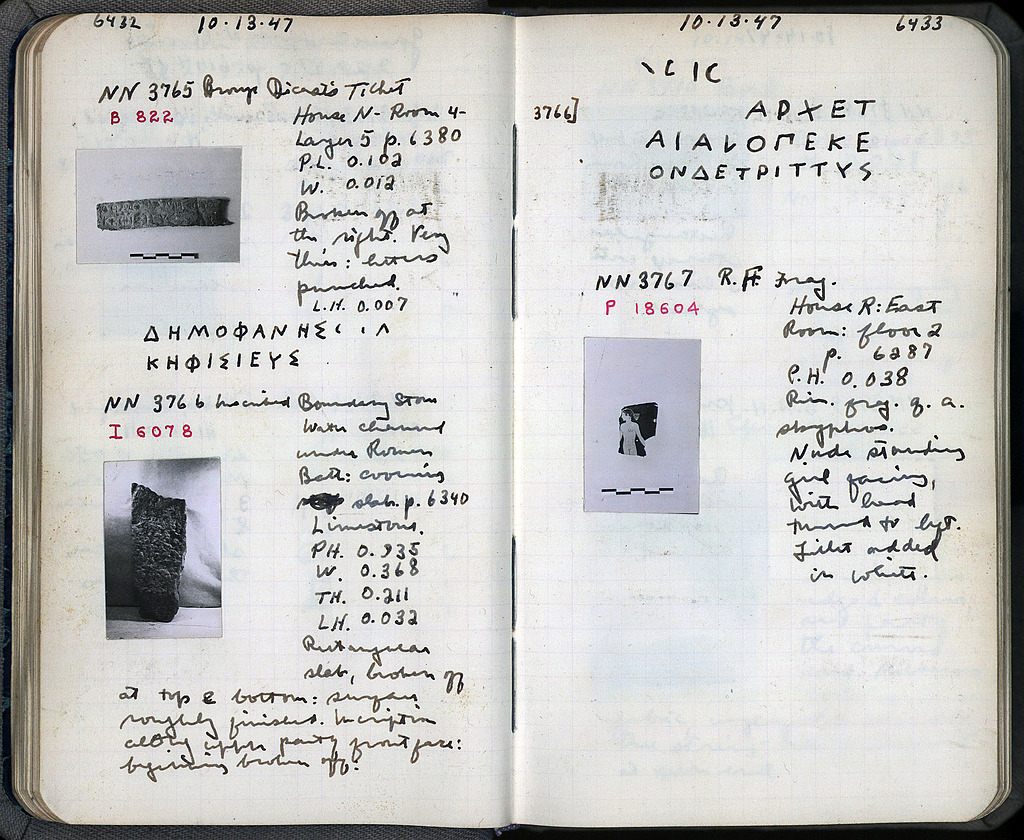 6432
10·13·47
NN 3765 Bronze Dicast's Ticket
B 822
House N- Room 4-
Layer 5 p. 6380
P.L. 0.102
W. 0.012
Broken off at
the right. Very
thin: letters
punched.
L.H. 0.007
ΔΗΜΟΦΑΝΗΣ
ΚΗΦΙΣΙΕΥΣ
NN 3766 Inscribed Boundary Stone
I 6078
Water channel
under Roman
Bath: covering
slab. p. 6340
Limestone.
PH. 0.935
W. 0.368
TH. 0.211
LH. 0.032
Rectangular
slab, broken off
at top & bottom: surface
roughly finished. Inscription
along upper part of front face:
beginning broken off.
10·13·47
6433
3766]
ΑΡΧΕΤ
ΑΙΔΙΟΠΕΚΕ
ΟΝΔΕΤΡΙΤΤΥΣ
NN 3767 R.F. Frag.
P 18604
House R: East
Room: floor 2
p. 6287
P.H. 0.038
Rim. frag. of a
skyphos.
Nude standing
girl facing,
with head
turned to left.
Fillet added
in white.